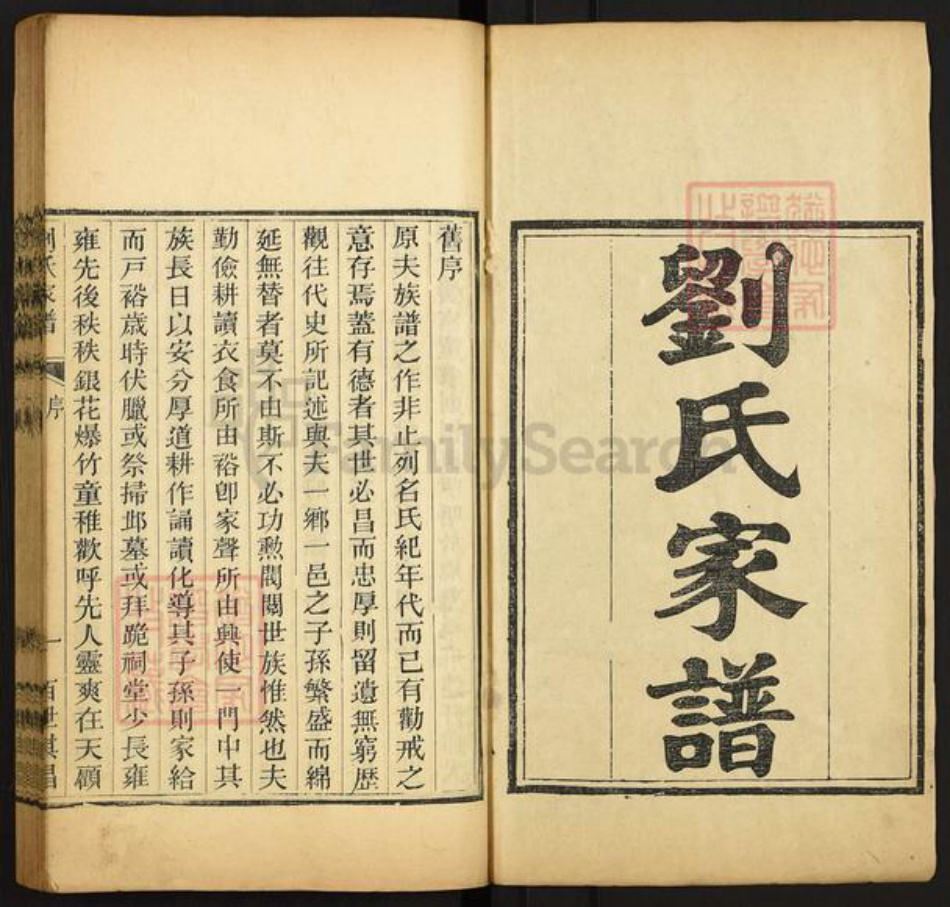 劉氏家譜
舊序
原夫族譜之作非止列名氏紀年代而已有勸戒之
意存焉蓋有德者其世必昌而忠厚則留遺無窮歷
觀往代史所記述與夫一鄉一邑之子孫繁盛而綿
延無替者莫不由斯不必功勲閥閱世族惟然也夫
勤儉耕讀衣食所由裕卽家聲所由興使一門中其
族長日以安分厚道耕作誦讀化導其子孫則家給
而戶裕歲時伏臘或祭掃邱墓或拜跪祠堂少長雍
雍先後秩秩銀花爆竹童稚歡呼先人靈爽在天顧
劉氏家譜 序 一 百世其昌
FamilySearch